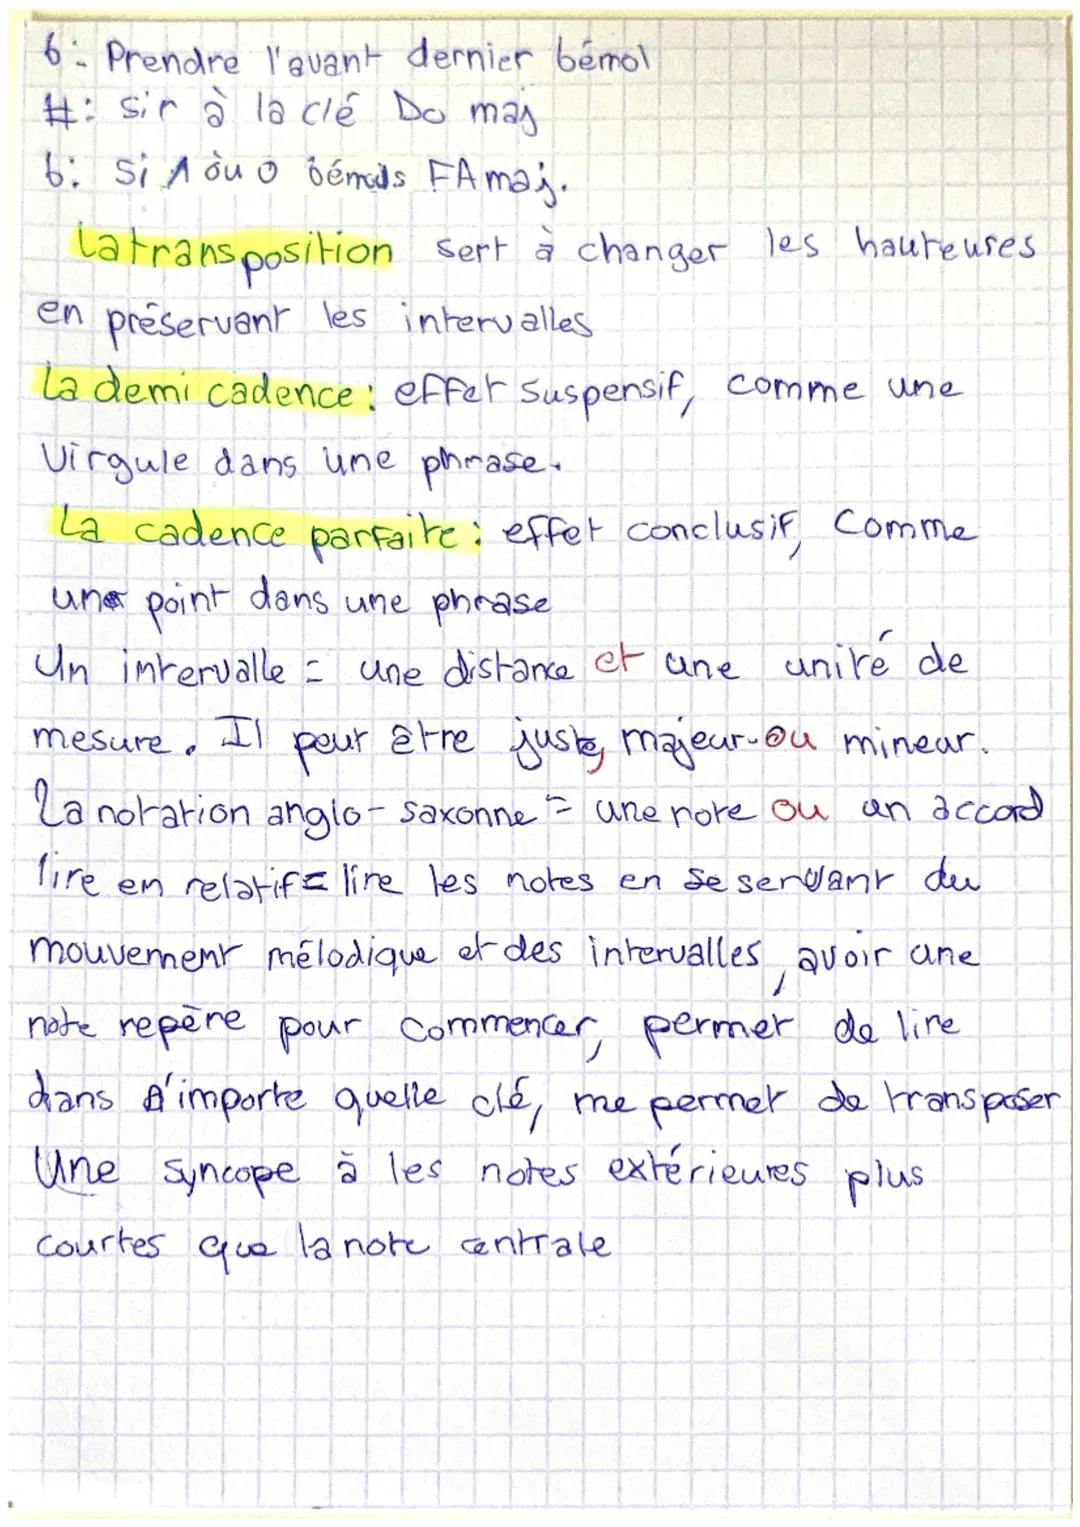 b: Prendre l'avant dernier bémol
#: sir à la clé Do maj
b: Si 1 òu 0 bémols FA maj.
La transposition sert à changer les hauteures
en préservant les intervalles
La demi cadence: effet suspensif, comme une
virgule dans une phrase.
La cadence parfaite: effet conclusif, comme
une point dans une phrase
Un intervalle = une distance et une unité de
mesure. Il peut être juste, majeur ou mineur.
La notation anglo-saxonne = une note ou un accord
lire en relatif = lire les notes en se servant du
mouvement mélodique et des intervalles, avoir une
note repère pour commencer, permet de lire
dans n'importe quelle clé, me permet de transposer
Une syncope à les notes extérieures plus
courtes que la note centrale